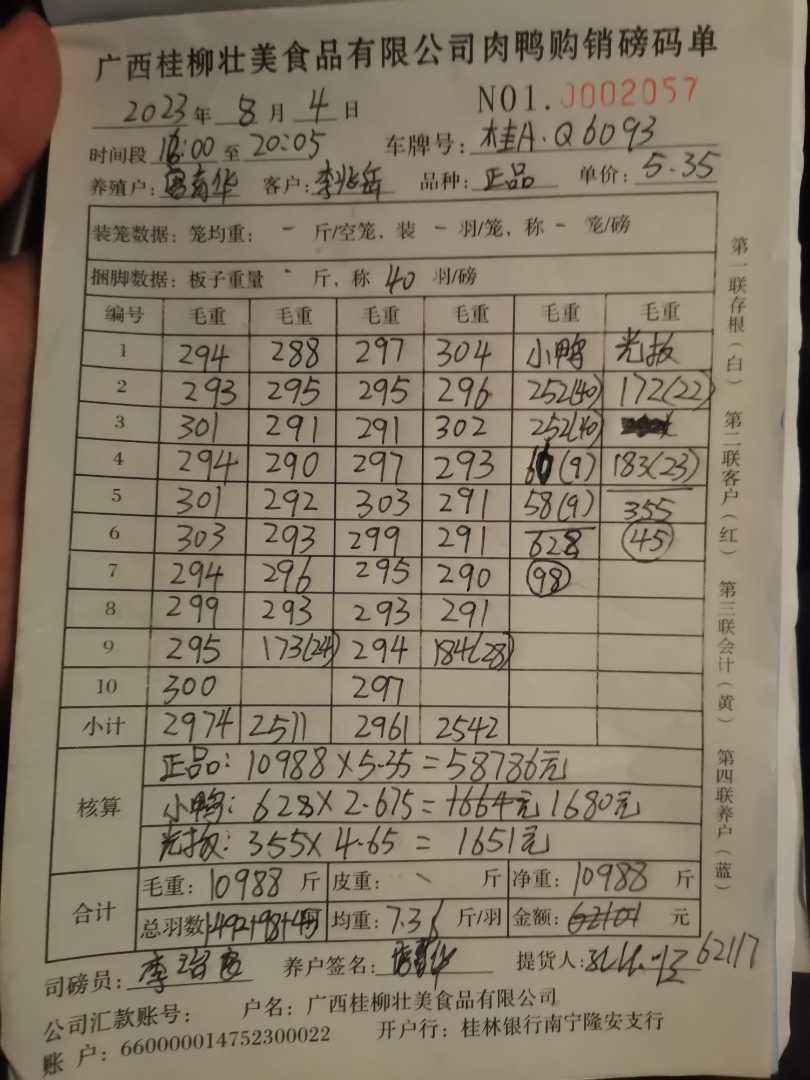 广西桂柳壮美食品有限公司肉鸭购销磅码单
2023年8月4日 NO1.J002057
时间段 16:00至20:05 车牌号:桂A·Q6093
养殖户: 客户:李兆岳 品种:正品 单价:5.35
装笼数据:笼均重:-斤/空笼,装-羽/笼,称-笼/磅
捆脚数据:板子重量-斤,称40羽/磅
编号 毛重 毛重 毛重 毛重 毛重 毛重
1 294 288 297 304 小鸭 光扳
2 293 295 295 296 252(40) 172(22)
3 301 291 291 302 252(40)
4 294 290 297 293 (9) 183(23)
5 301 292 303 291 58(9) 355
6 303 293 299 291 628 45
7 294 296 295 290 98
8 299 293 293 291
9 295 173(24) 294 184(28)
10 300 297
小计 2974 2511 2961 2542
核算
正品:10988×5.35=58786元
小鸭:628×2.675=1664元 1680元
光扳:355×4.65=1651元
合计
毛重:10988斤 皮重: 斤 净重:10988斤
总羽数1492+98+45 均重:7.36斤/羽 金额:62101元
司磅员: 养户签名: 提货人: 62117
公司汇款账号: 户名:广西桂柳壮美食品有限公司
账户:660000014752300022 开户行:桂林银行南宁隆安支行
第一联存根(白)
第二联客户(红)
第三联会计(黄)
第四联养户(蓝)